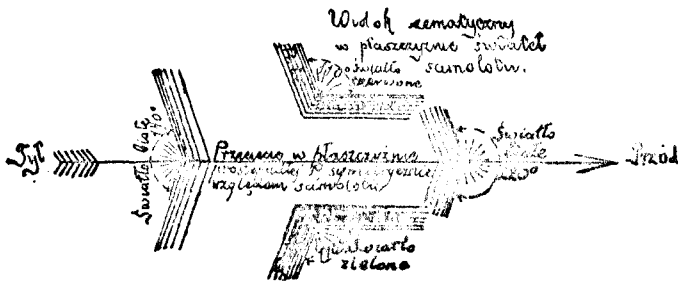 Widok sematyczny
w płaszczyźnie świateł
samolotu.
światło
czerwone
Tył
Światło białe
140°
Przecięcie w płaszczyźnie
symetrycznie
względem samolotu
Światło
białe
220°
Przód
światło
zielone